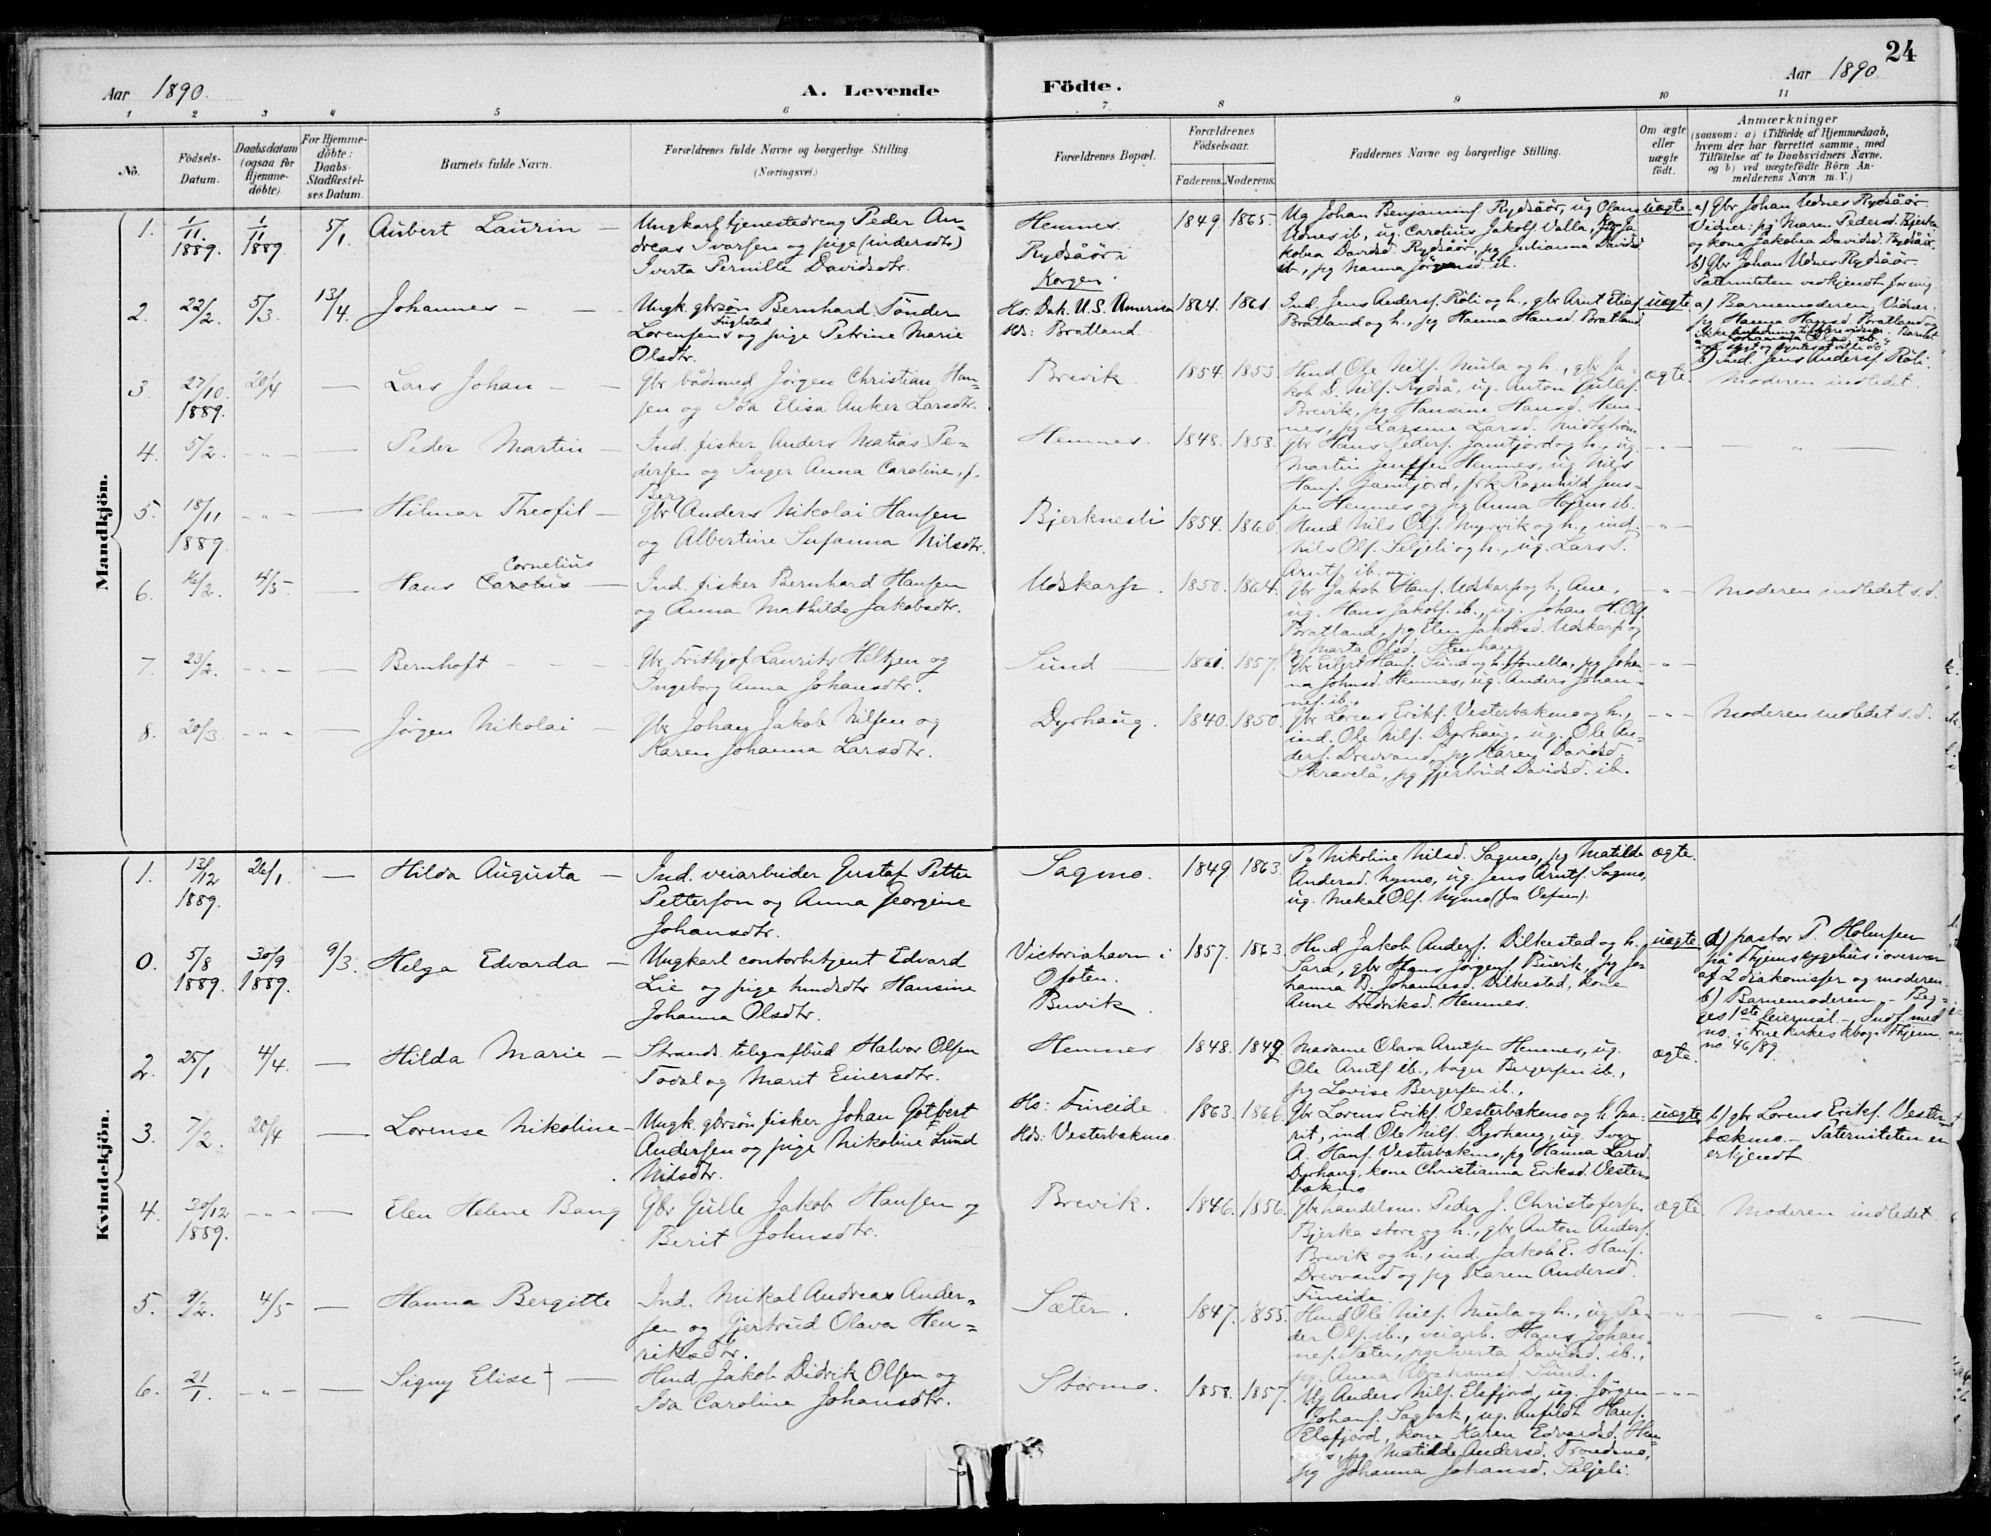 24
Aar 1890.
A. Levende
Födte.
Aar 1890.
1 2 3 4 5 6 7 8 9 10 11
No.
Födsels-
Datum.
Daabsdatum
(ogsaa for
Hjemme-
döbte).
For Hjemme-
döbte:
Daabs-
Stadfæstel-
ses Datum.
Barnets fulde Navn.
Forældrenes fulde Navne og borgerlige Stilling
(Næringsvei.)
Forældrenes Bopæl.
Forældrenes
Födselsaar.
Faderens.
Moderens.
Faddernes Navne og borgerlige Stilling.
Om ægte
eller
uægte
födt.
Anmærkninger
(saasom: a) i Tilfælde af Hjemmedaab,
hvem der har forrettet samme, med
Tilföielse af to Daabsvidners Navne,
og b) ved uægtefödte Börn An-
melderens Navn m. V.)
Mandkjön.
1.
1/11
1889.
1/11
1889
5/1
Aubert Laurin
Ungkarl tjenestedreng Peder An-
dreas Ivarsen og pige (indersdtr)
Iverta Pernille Davidsdtr.
Hemnes
Rydsåör i
Korgen.
1849. 1865.
Ug Johan Benjaminf. Rydsåör, ug Olaus
Udnes ib, ug. Carolius Jakobf. Valla,
kobea Davidsd. Rydsåör, pg Julianna Davidsd
ib., pg Nanna Jörgensd. ib.
uægte
a) Gbr Johan Udnes Rydsåör.
Vidner: pg Maren Pedersd. Bjerka
og kona Jakobea Davidsd. Rydsåör.
b) Gbr Johan Udnes Rydsåör.
Paterniteten vedkjendt for mig.
2.
22/2.
5/3.
13/4.
Johannes
Ungk. gbrsön Bernhard Tönder
Lorensen Fuglstad og pige Petrine Marie
Olsdtr.
Hs: Dak. U.S. America
Hds: Bratland
1864. 1861.
Ind. Jens Andersf. Röli og h., gbr Arnt Eliasf
Bratland og h., pg Hanna Hansd. Bratland
uægte
a) Barnemoderen, Vidner:
pg Hanna Hansd. Bratland og
b) Ind. Jens Andersf. Röli.
3
27/10.
1889.
20/4
Lars Johan
Gbr bådsmed Jörgen Christian Han-
sen og Ida Elisa Anker Larsdtr.
Brevik.
1854. 1853.
Hmd Ole Nilf. Mula og h., gbr Ja-
kob D. Nilf. Rydså, ug. Anton Gullesf.
Brevik, pg Hansine Hansd. Hem-
nes, pg Larsine Larsd. Midtström
ægte.
Moderen indledet.
4.
5/2.
Peder Martin
Ind. fisker Anders Matias Pe-
dersen og Inger Anna Caroline, f.
Berg
Hemnes.
1848. 1858.
Gbr Hans Pedersf. Jamtjord og h., ug
Martin Jenssen Hemnes, ug Nils
Hansf. Jamtjord, frk Ragnhild Jens-
sen Hemnes og pg Anna Hagens ib.
5.
18/11
1889.
Hilmar Theofil
Gbr Anders Nikolai Hansen
og Albertine Susanna Nilsdtr.
Bjerknesli
1854. 1860.
Hmd Nils Olf. Myrvik og h., ind.
Nils Olf. Seljeli og h., ug. Lars S.
Arntf. ib.
6.
16/2.
4/5.
Hans Carolus Cornelius
Ind. fisker Bernhard Hansen
og Anna Mathilde Jakobsdtr.
Udskarp.
1850. 1864.
Gbr Jakob Hansf. Udskarp og h. Ane,
ug. Hans Jakobf. ib., ug. Johan H. Olf.
Bratland, pg Elen Jakobsd. Udskarp og
pg Marta Olsd. Stenhaug.
Moderen indledet s.d.
7.
23/2.
Bernhoft
Gbr. Frithjof Laurits Heltzen og
Ingeborg Anna Johansdtr.
Sund
1861. 1857.
Gbr Eilert Hansf. Sund og h. Jonella, pg Johan-
na Johnsd. Hemnes, ug. Anders Johan-
nesf. ib.
8.
20/3.
Jörgen Nikolai
Gbr Johan Jakob Nilsen og
Karen Johanna Larsdtr.
Dyrhaug.
1840. 1850.
Gbr Lorens Erikf. Vesterbækmo og h.,
ind. Ole Nilf. Dyrhaug, ug. Ole An-
dersf. Drevvand, pg Karen Davidsd.
Skravelå, pg Gjertrud Davidsd. ib.
Moderen indledet s.d.
Kvindekjön.
1.
13/12
1889.
26/1.
Hilda Augusta
Ind. veiarbeider Gustaf Petter
Petterson og Anna Georgine
Johansdtr.
Sagmo.
1849. 1863.
Pg Nikoline Nilsd. Sagmo, pg Matilde
Andersd. Nymo, ug. Jens Arntf. Sagmo,
ug. Mekal Olf. Nymo (fra Vefsen).
ægte.
0.
5/8
1889.
30/9
1889.
9/3.
Helga Edvarda
Ungkarl contorbetjent Edvard
Lie og pige hmdsdtr Hansine
Johanna Olsdtr.
Victoriahavn i
Ofoten.
Buvik.
1857. 1863.
Hmd Jakob Andersf. Dilkestad og h.
Sara, gbr Hans Jörgenf. Buvik, pg Jo-
hanna B. Johannesd. Dilkestad, kone
Anne Fredriksd. Hemnes.
uægte
a) pastor P. Holmsen
på Thjems sygehus i overvær
af 2 diakonisser og moderen.
b) Barnemoderen. – Beg-
ges 1ste leiermål. – Indf. med
no. i Frue kirkes kbog i Thjem.
no. 46/89.
2.
25/1
4/4.
Hilda Marie
Strands. telegrafbud Halvor Olsen
Todal og Marit Einersdtr.
Hemnes
1848. 1849
Madame Olava Arntsen Hemnes, ug.
Ole Arntf ib., bager Bergersen ib.,
pg Lovise Bergersen ib.,
ægte.
3.
7/2.
20/4
Lorense Nikoline
Ungk. gbrsön fisker Johan Gotbert
Andersen og pige Nikoline Lund
Nilsdtr.
Hs: Fineide.
Hds: Vesterbækmo.
1863. 1866.
Gbr Lorens Erikf. Vesterbækmo og h. Ma-
rit, ind. Ole Nilf. Dyrhaug, ug. Iver
A. Hansf. Vesterbækmo, pg Hanna Larsd.
Dyrhaug, kone Christianna Eriksd. Vester-
bækmo
uægte
b) gbr Lorens Erikf. Vester-
bækmo. – Paterniteten er
erkjendt.
4.
30/12
1889.
Elen Helene Bang
Gbr Gulle Jakob Hansen og
Berit Johnsdtr.
Brevik.
1846. 1856.
Gbr handelsm. Peder J. Christofersen
Bjerka store og h., gbr Anton Andersf.
Brevik og h., ind. Jakob E. Hansf.
Drevvand og pg Karen Andersd.
Fineide.
ægte
Moderen indledet.
5.
9/2.
4/5
Hanna Bergitte
Ind. Mikal Andreas Ander-
sen og Gjertrud Olava Hen-
riksdtr.
Sæter.
1847. 1855.
Hmd Ole Nilf. Mula og h., ug Pe-
der Olf. ib., veiarb. Hans Johan-
nesf. Sæter, pg Iverta Davidsd. ib.,
pg. Anna Abrahamsd Sund.
6.
21/1.
Signy Elise †
Hmd Jakob Didrik Olsen og
Ida Caroline Johansdtr.
Stormo.
1858. 1857.
Ug Anders Nilf. Elsfjord, ug. Jörgen
Johansf. Sagbak, ug. Anfeldt Hansf.
Elsfjord, kone Karen Edvardsd. Hem-
nes, pg Matilde Andersd. Trondsmo,
pg Johanna Johansd. Seljeli.